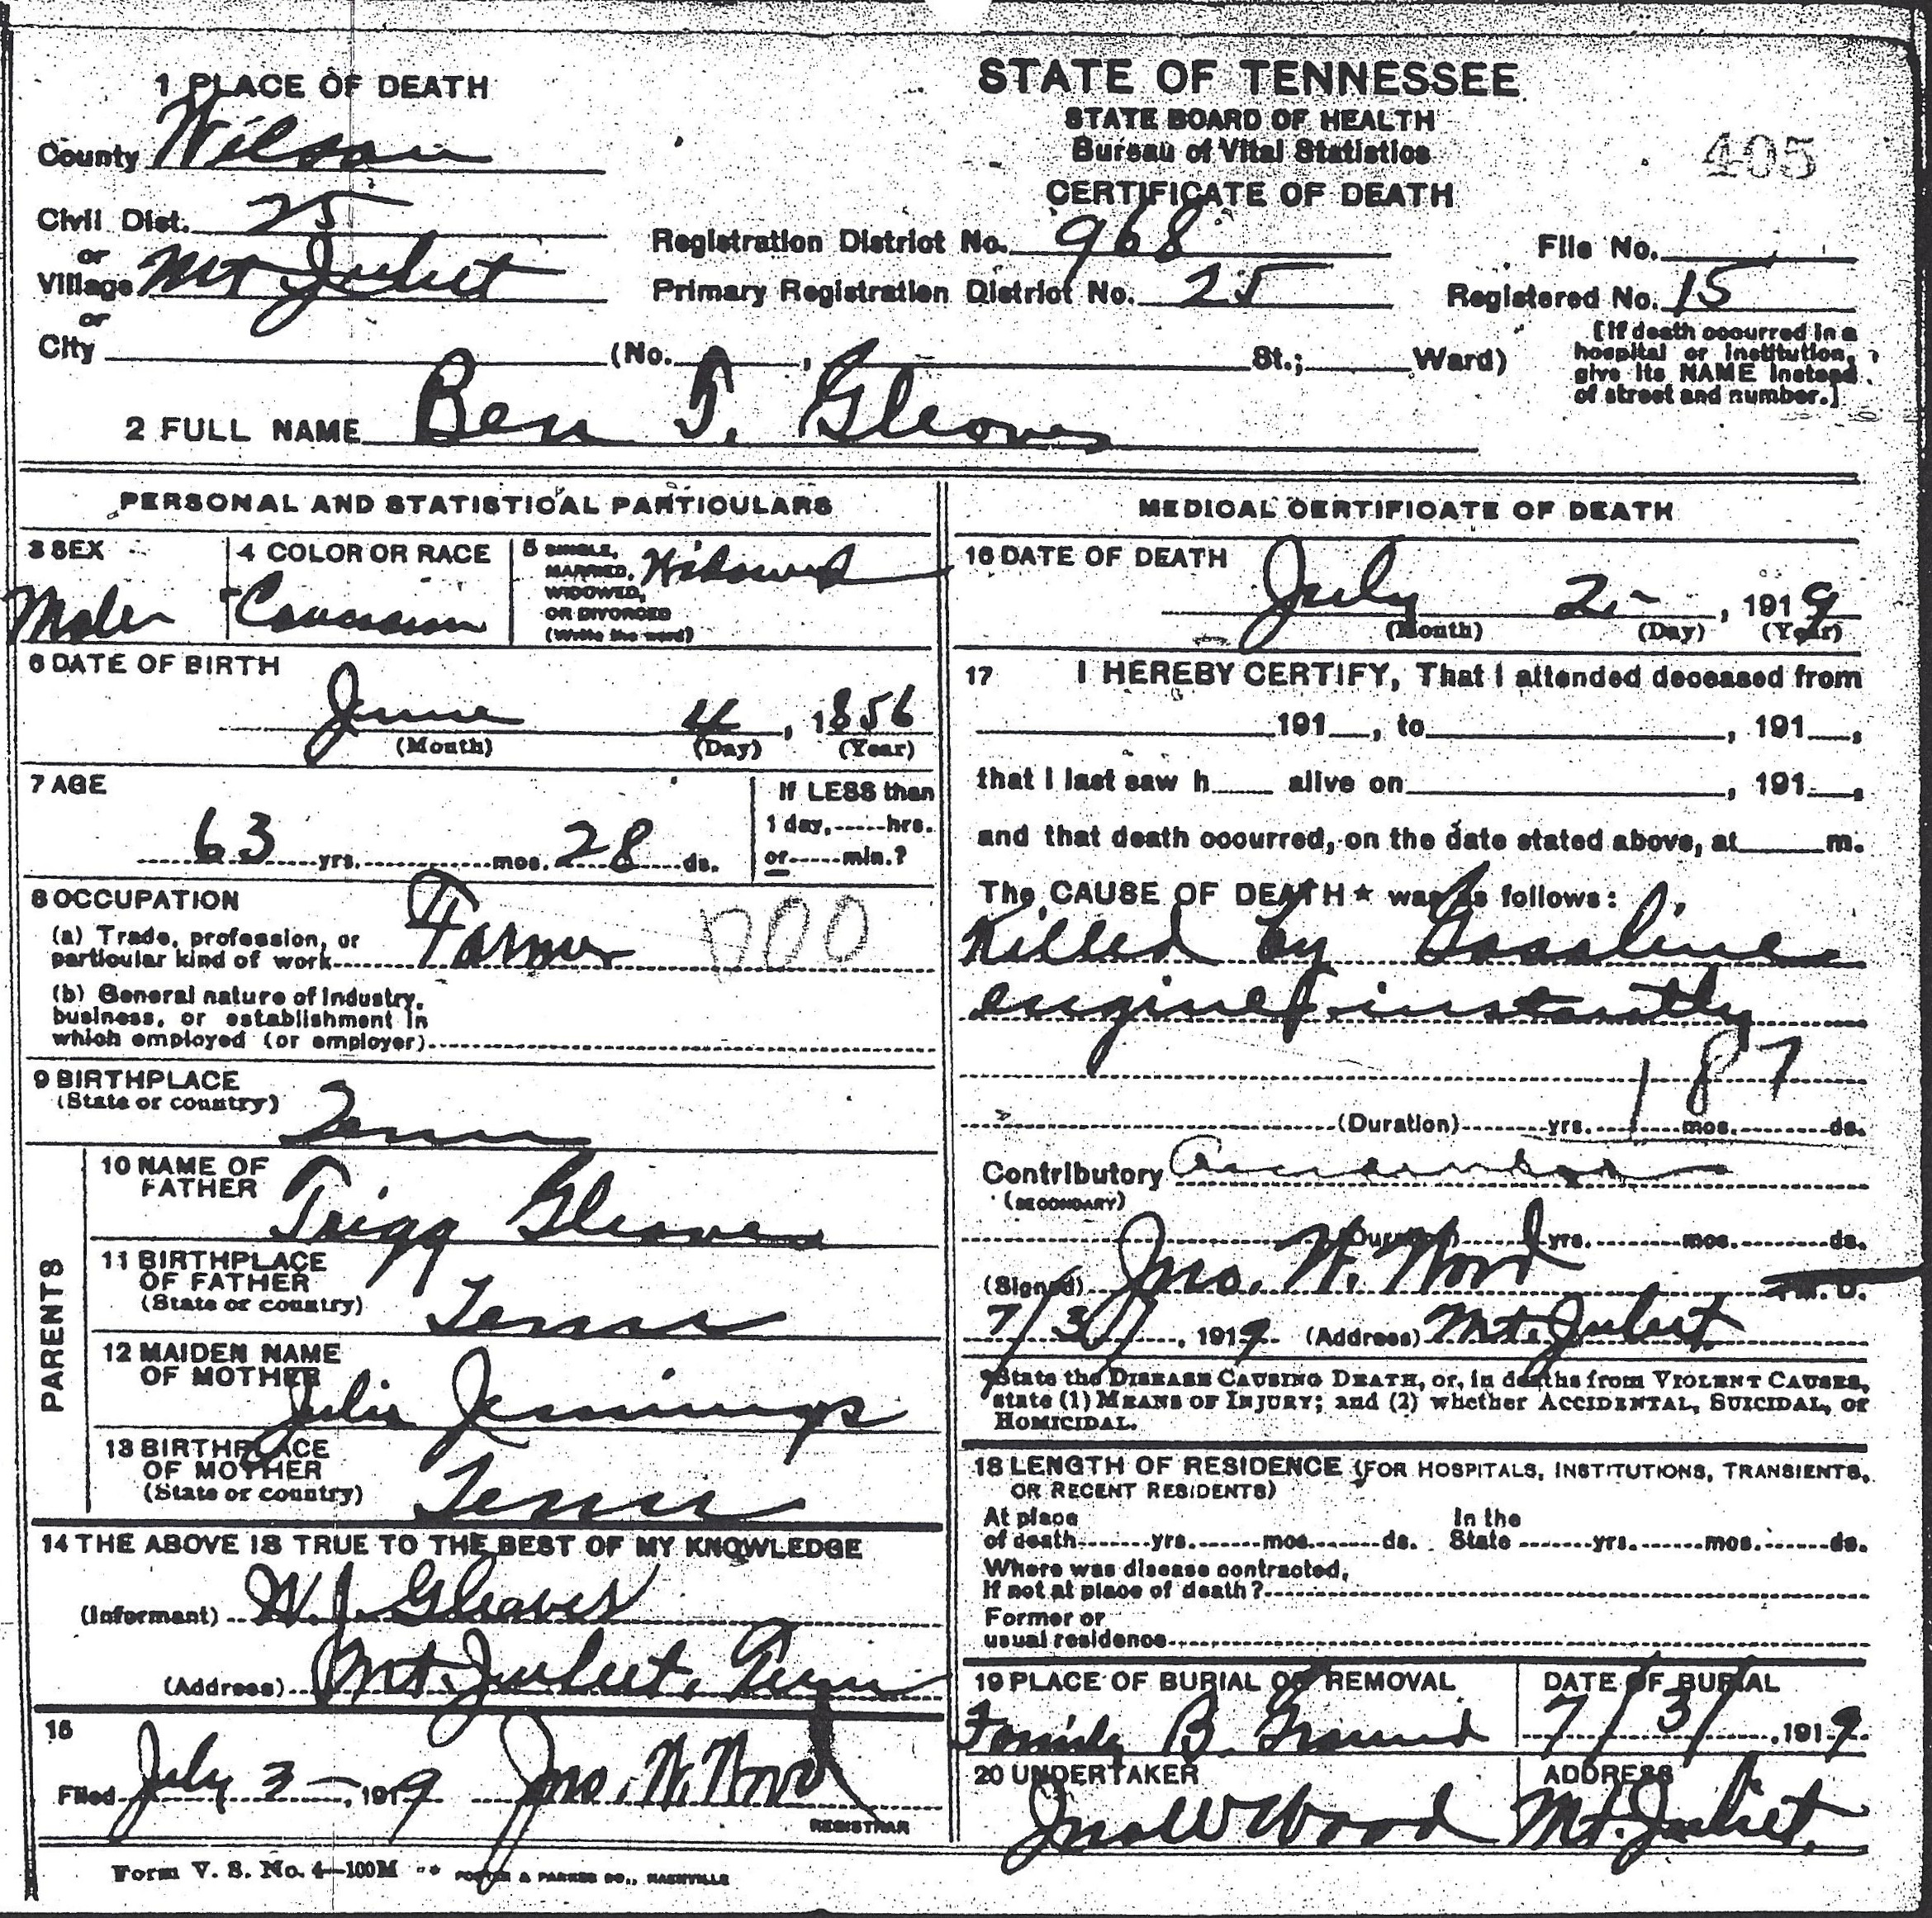 1 PLACE OF DEATH
County Wilson
Civil Dist. 25
or
Village Mt Juliet
or
City (No. , St.; Ward)
STATE OF TENNESSEE
STATE BOARD OF HEALTH
Bureau of Vital Statistics
CERTIFICATE OF DEATH
405
Registration District No. 968
File No.
Primary Registration District No. 25
Registered No. 15
[If death occurred in a
hospital or institution,
give its NAME instead
of street and number.]
2 FULL NAME Ben T. Gleaves
PERSONAL AND STATISTICAL PARTICULARS
3 SEX
Male
4 COLOR OR RACE
Caucasian
5 SINGLE,
MARRIED,
WIDOWED,
OR DIVORCED
(Write the word)
Widowed
6 DATE OF BIRTH
June 4, 1856
(Month) (Day) (Year)
7 AGE
63 yrs. mos. 28 ds.
If LESS than
1 day, hrs.
or min.?
8 OCCUPATION
(a) Trade, profession, or
particular kind of work Farmer 000
(b) General nature of industry,
business, or establishment in
which employed (or employer)
9 BIRTHPLACE
(State or country) Tenn
PARENTS
10 NAME OF
FATHER
Trigg Gleaves
11 BIRTHPLACE
OF FATHER
(State or country) Tenn
12 MAIDEN NAME
OF MOTHER
Julia Jennings
13 BIRTHPLACE
OF MOTHER
(State or country) Tenn
14 THE ABOVE IS TRUE TO THE BEST OF MY KNOWLEDGE
(Informant) W. J. Gleaves
(Address) Mt. Juliet, Tenn
15
Filed July 3, 1919 Jno. W. Wood
REGISTRAR
MEDICAL CERTIFICATE OF DEATH
16 DATE OF DEATH
July 2, 1919
(Month) (Day) (Year)
17 I HEREBY CERTIFY, That I attended deceased from
191 , to , 191 ,
that I last saw h alive on , 191 ,
and that death occurred, on the date stated above, at m.
The CAUSE OF DEATH* was as follows:
Killed by Gasoline
engine instantly
187
(Duration) yrs. mos. ds.
Contributory Accidental
(SECONDARY)
(Duration) yrs. mos. ds.
(Signed) Jno. W. Wood M. D.
7/3/, 1919 (Address) Mt. Juliet
*State the DISEASE CAUSING DEATH, or, in deaths from VIOLENT CAUSES,
state (1) MEANS OF INJURY; and (2) whether ACCIDENTAL, SUICIDAL, or
HOMICIDAL.
18 LENGTH OF RESIDENCE (FOR HOSPITALS, INSTITUTIONS, TRANSIENTS,
OR RECENT RESIDENTS)
At place In the
of death yrs. mos. ds. State yrs. mos. ds.
Where was disease contracted,
If not at place of death?
Former or
usual residence
19 PLACE OF BURIAL OR REMOVAL
Family B. Ground
DATE OF BURIAL
7/3/, 1919
20 UNDERTAKER
Jno W Wood
ADDRESS
Mt. Juliet,
Form V. S. No. 4—100M FOSTER & PARKES CO., NASHVILLE